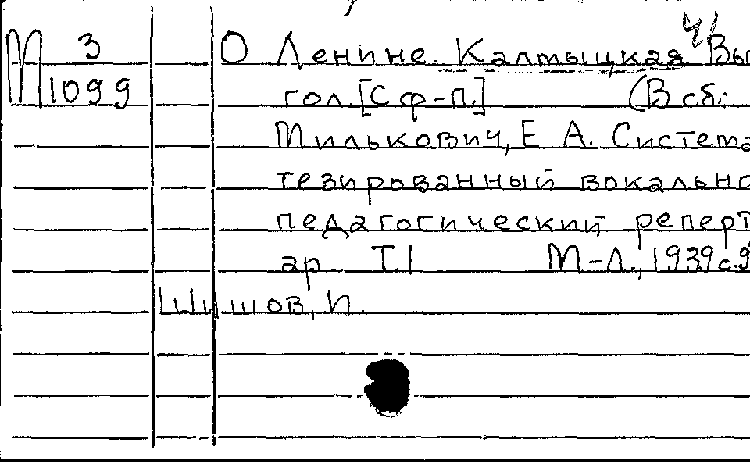 М 3 О Ленине. Калмыцкая Вы
1099 гол. [С ф-п.] (В сб.:
Милькович, Е А. Система
тезированный вокально
педагогический реперт
ар Т.1 М-Л., 1939 с.9
Шишов, И.